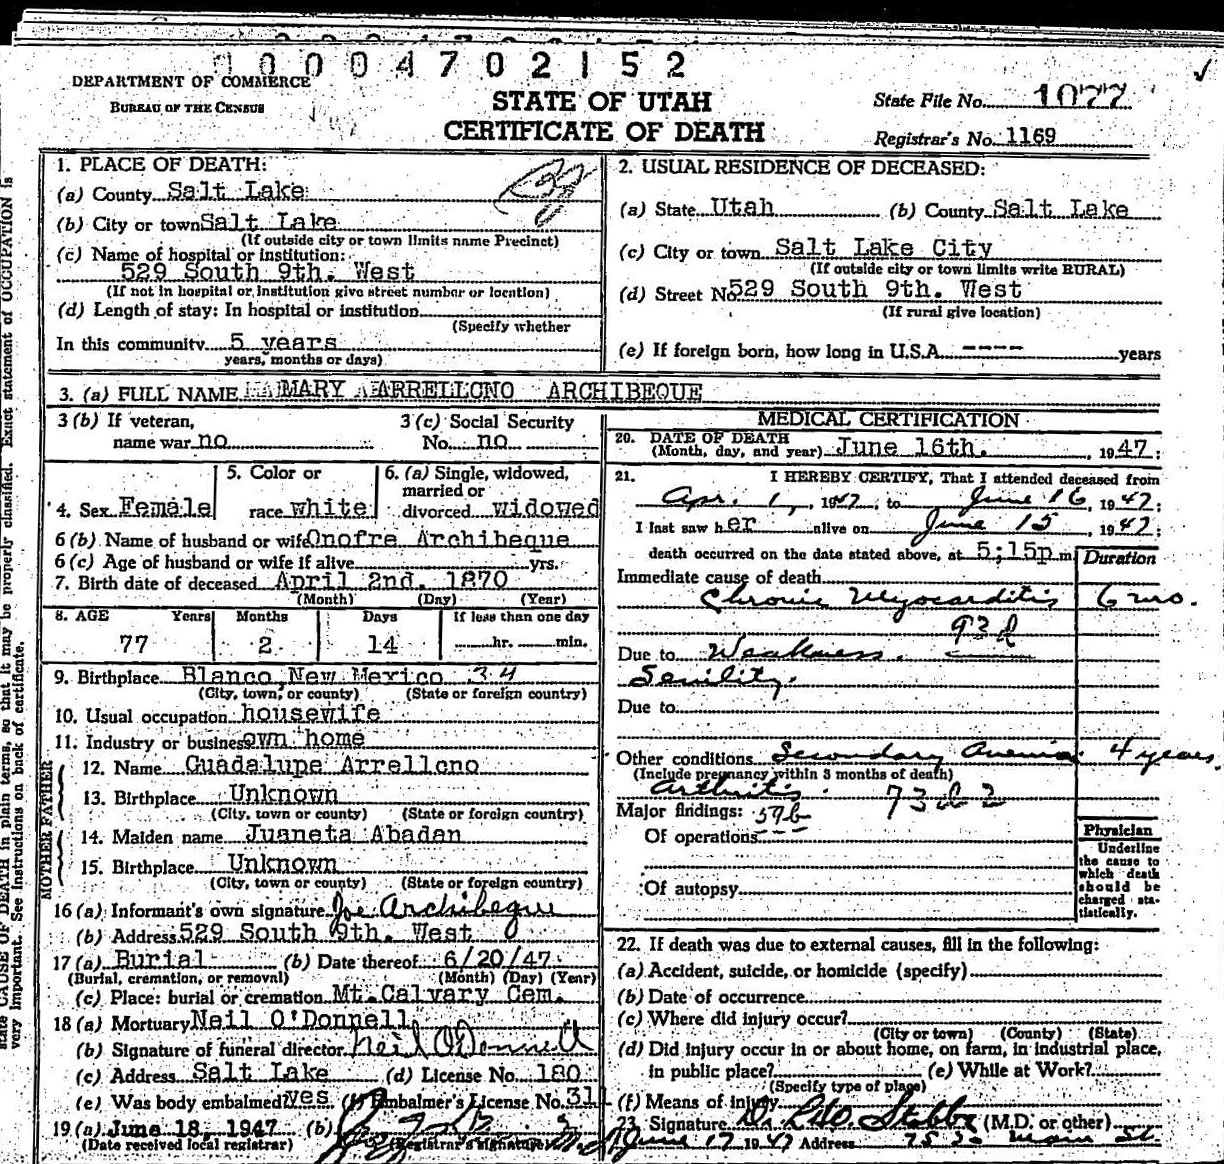 10004702152
DEPARTMENT OF COMMERCE
BUREAU OF THE CENSUS
STATE OF UTAH
CERTIFICATE OF DEATH
State File No. 1077
Registrar's No. 1169
1. PLACE OF DEATH:
(a) County Salt Lake
(b) City or town Salt Lake
(If outside city or town limits name Precinct)
(c) Name of hospital or institution:
529 South 9th. West
(If not in hospital or institution give street number or location)
(d) Length of stay: In hospital or institution
(Specify whether
In this community 5 years
years, months or days)
2. USUAL RESIDENCE OF DECEASED:
(a) State Utah (b) County Salt Lake
(c) City or town Salt Lake City
(If outside city or town limits write RURAL)
(d) Street No. 529 South 9th. West
(If rural give location)
(e) If foreign born, how long in U.S.A. ---- years
3. (a) FULL NAME MARY ARRELLONO ARCHIBEQUE
3 (b) If veteran,
name war no
3 (c) Social Security
No. no
4. Sex Female
5. Color or
race white
6. (a) Single, widowed,
married or
divorced widowed
6 (b) Name of husband or wife Onofre Archibeque
6 (c) Age of husband or wife if alive yrs.
7. Birth date of deceased April 2nd. 1870
(Month) (Day) (Year)
8. AGE Years Months Days If less than one day
77 2 14 hr. min.
9. Birthplace Blanco, New Mexico 34
(City, town, or county) (State or foreign country)
10. Usual occupation housewife
11. Industry or business own home
FATHER
12. Name Guadalupe Arrellono
13. Birthplace Unknown
(City, town or county) (State or foreign country)
MOTHER
14. Maiden name Juaneta Abadan
15. Birthplace Unknown
(City, town or county) (State or foreign country)
16 (a) Informant's own signature Joe Archibeque
(b) Address 529 South 9th. West
17 (a) Burial (b) Date thereof 6/20/47
(Burial, cremation, or removal) (Month) (Day) (Year)
(c) Place: burial or cremation Mt. Calvary Cem.
18 (a) Mortuary Neil O'Donnell
(b) Signature of funeral director Neil O'Donnell
(c) Address Salt Lake (d) License No. 180
(e) Was body embalmed? yes (f) Embalmer's License No. 311
19 (a) June 18, 1947 (b)
(Date received local registrar) (Registrar's signature)
MEDICAL CERTIFICATION
20. DATE OF DEATH
(Month, day, and year) June 16th. , 1947;
21. I HEREBY CERTIFY, That I attended deceased from
Apr. 1, 1947, to June 16, 1947;
I last saw her alive on June 15, 1947;
death occurred on the date stated above, at 5;15p m
Duration
Immediate cause of death
Chronic Myocarditis 6 mo.
93d
Due to Weakness.
Senility.
Due to
Other conditions Secondary Anemia 4 years.
(Include pregnancy within 3 months of death)
Arthritis.
Major findings: 59b
Of operations ---
Of autopsy
Physician
Underline
the cause to
which death
should be
charged sta-
tistically.
22. If death was due to external causes, fill in the following:
(a) Accident, suicide, or homicide (specify)
(b) Date of occurrence
(c) Where did injury occur?
(City or town) (County) (State)
(d) Did injury occur in or about home, on farm, in industrial place,
in public place? (e) While at Work?
(Specify type of place)
(f) Means of injury
23. Signature (M.D. or other)
June 17 1947 Address Main St.
state CAUSE OF DEATH in plain terms, so that it may be properly classified. Exact statement of OCCUPATION is
very important. See instructions on back of certificate.